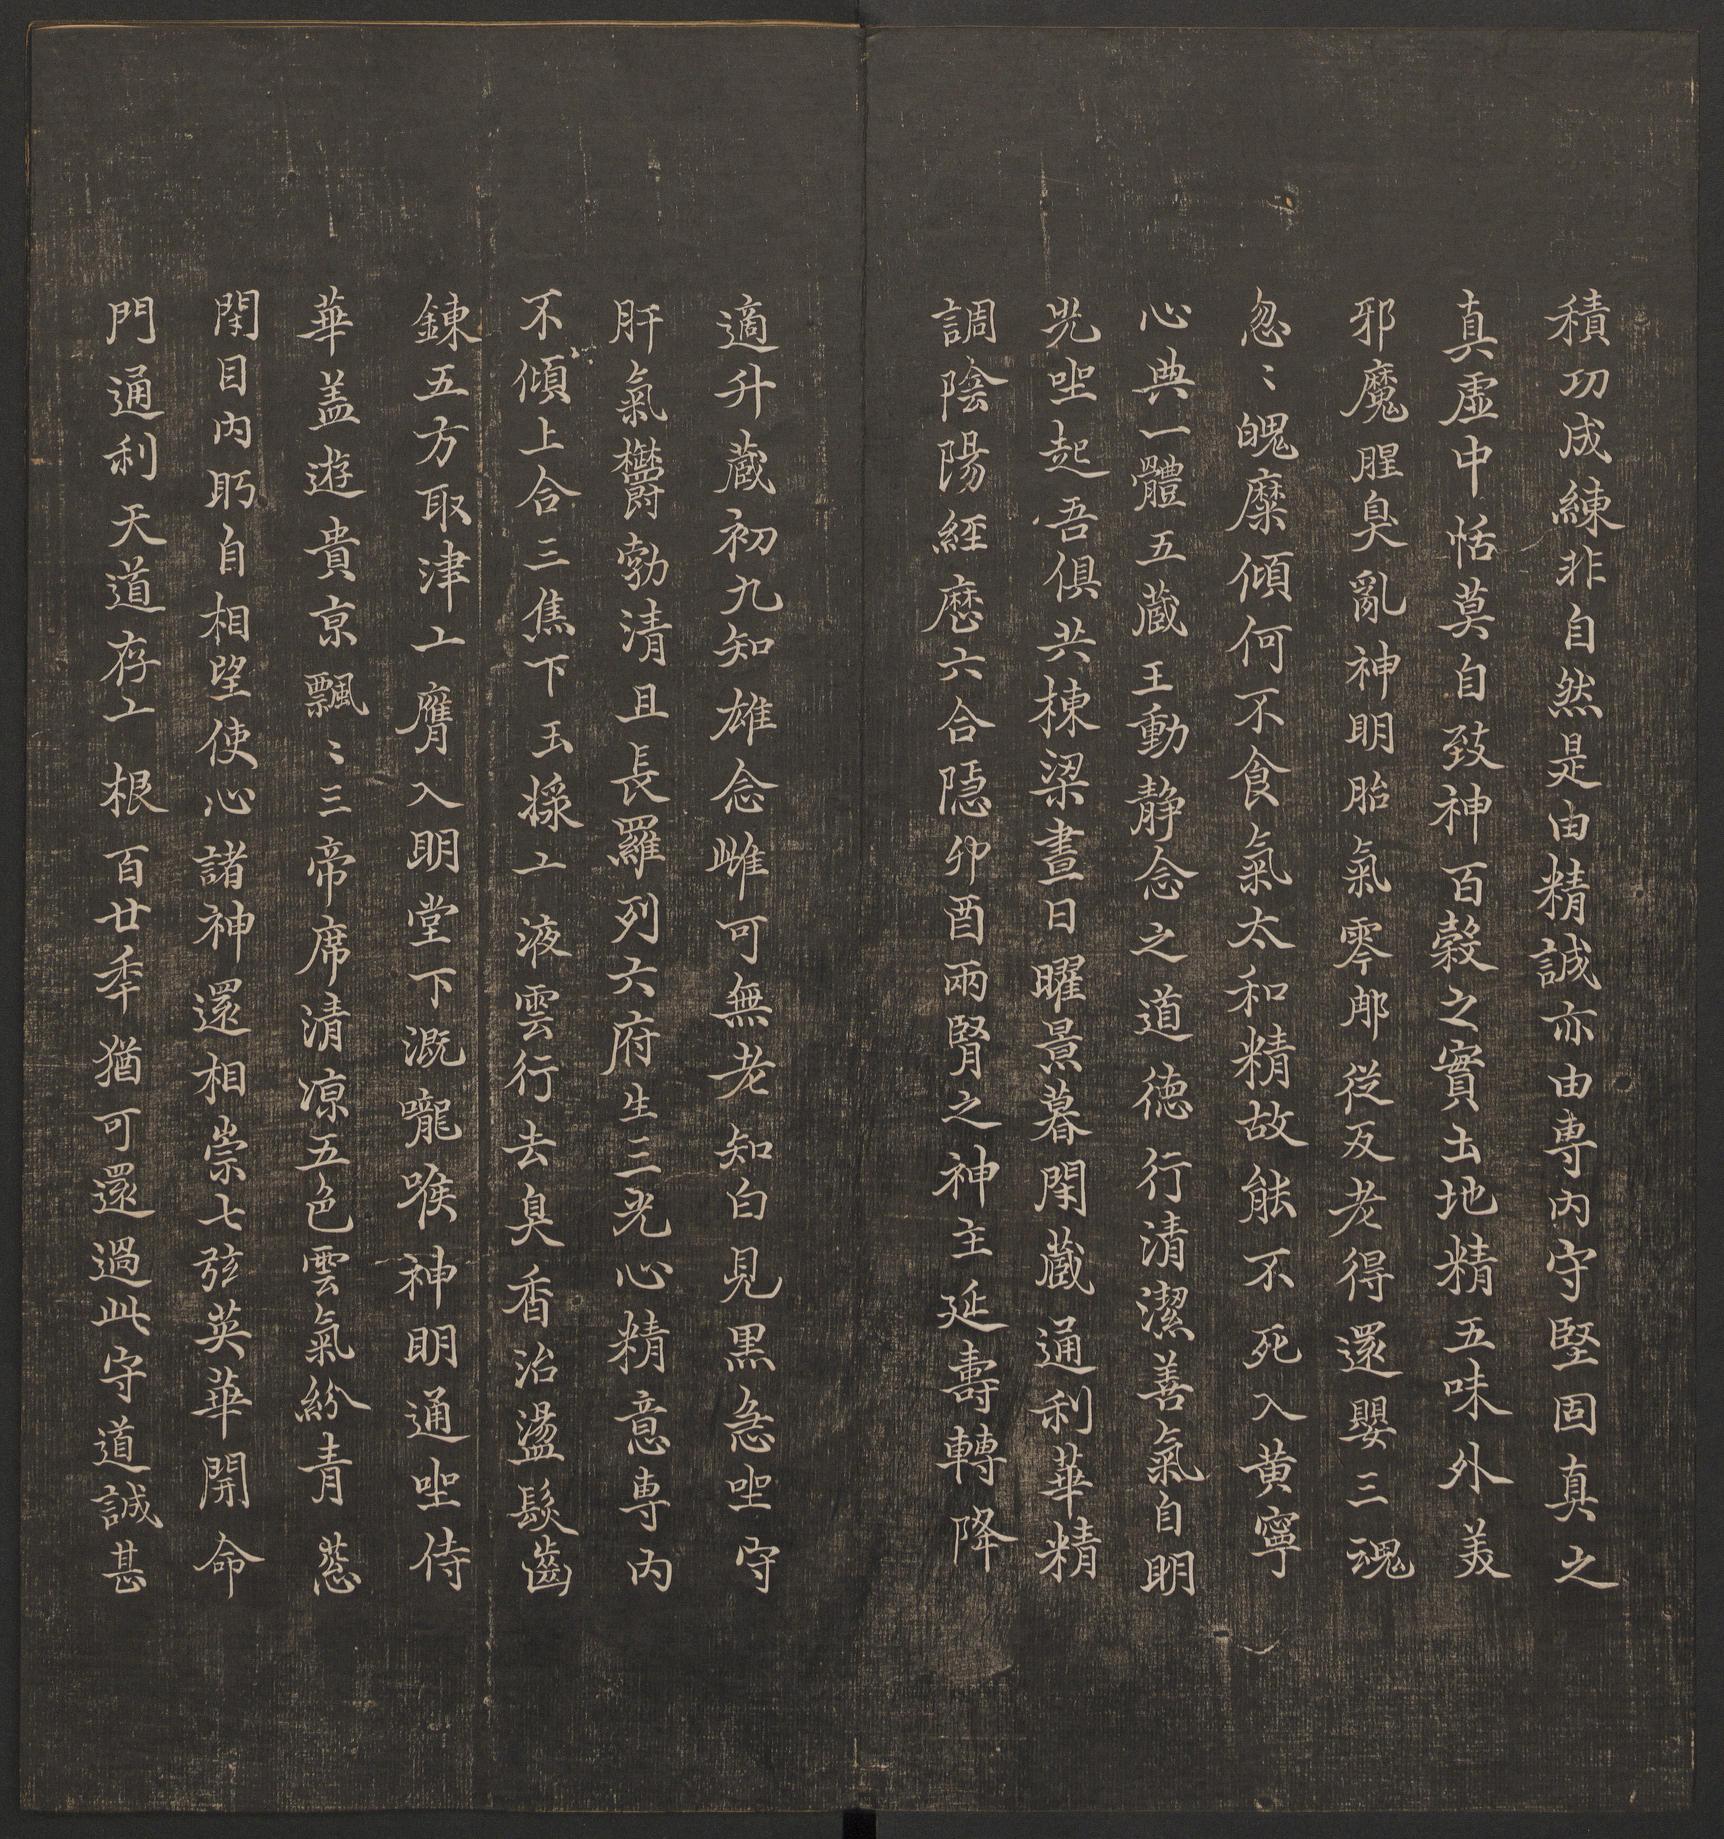 積功成練非自然是由精誠亦由専内守堅固真之
真虛中恬莫自致神百穀之實土地精五味外美
邪魔腥臭亂神明胎氣零那従反老得還嬰三魂
忽〻魄糜傾何不食氣太和精故能不死入黄寧
心典一體五蔵王動静念之道德行清潔善氣自明
光坐起吾俱共棟梁晝日曜景暮閇蔵通利華精
調陰陽經歷六合隠卯酉兩腎之神主延壽轉降
適升蔵初九知雄念雌可無老知白見黒急坐守
肝氣欝勃清且長羅列六府生三光心精意専内
不傾上合三焦下玉㨾亠液雲行去臭香治盪髮齒
錬五方取津亠膺入明堂下溉嚨喉神明通坐侍
華盖遊貴京飄〻三帝席清凉五色雲氣紛青蔥
閇目内眄自相望使心諸神還相崇七弦英華開命
門通利天道存亠根百廿秊猶可還過此守道誠甚